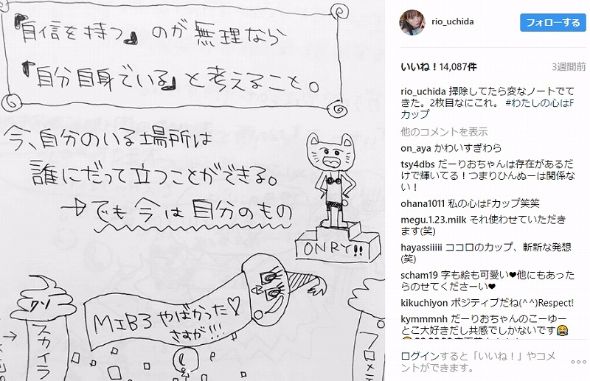 『自信を持つ』のが無理なら
『自分自身でいる』と考えること。
今、自分のいる場所は
誰にだって立つことができる。
→でも今は自分のもの
ONRY!!
クソ
スカイラ
MIB3 やばかった♡
さすが!!!
rio_uchida
フォローする
いいね！14,087件
3週間前
rio_uchida 掃除してたら変なノートでて
きた。2枚目なにこれ。 #わたしの心はF
カップ
他のコメントを表示
on_aya かわいすぎわら
tsy4dbs だーりおちゃんは存在があるだけ
で輝いてる！つまりひんぬーは関係な
い！
ohana1011 私の心はFカップ笑笑
megu.1.23.milk それ使わせていただき
ます(笑)
hayassiiiii ココロのカップ、斬新な発想
(笑)
scham19 字も絵も可愛い❤他にもあった
らのせてくださーい❤
kikuchiyon ポジティブだね(^^)Respect!
kymmmnh だーりおちゃんのこーゆー
とこ大好きだし共感でしかないです😭
ログインすると「いいね！」やコメ
ントができます。